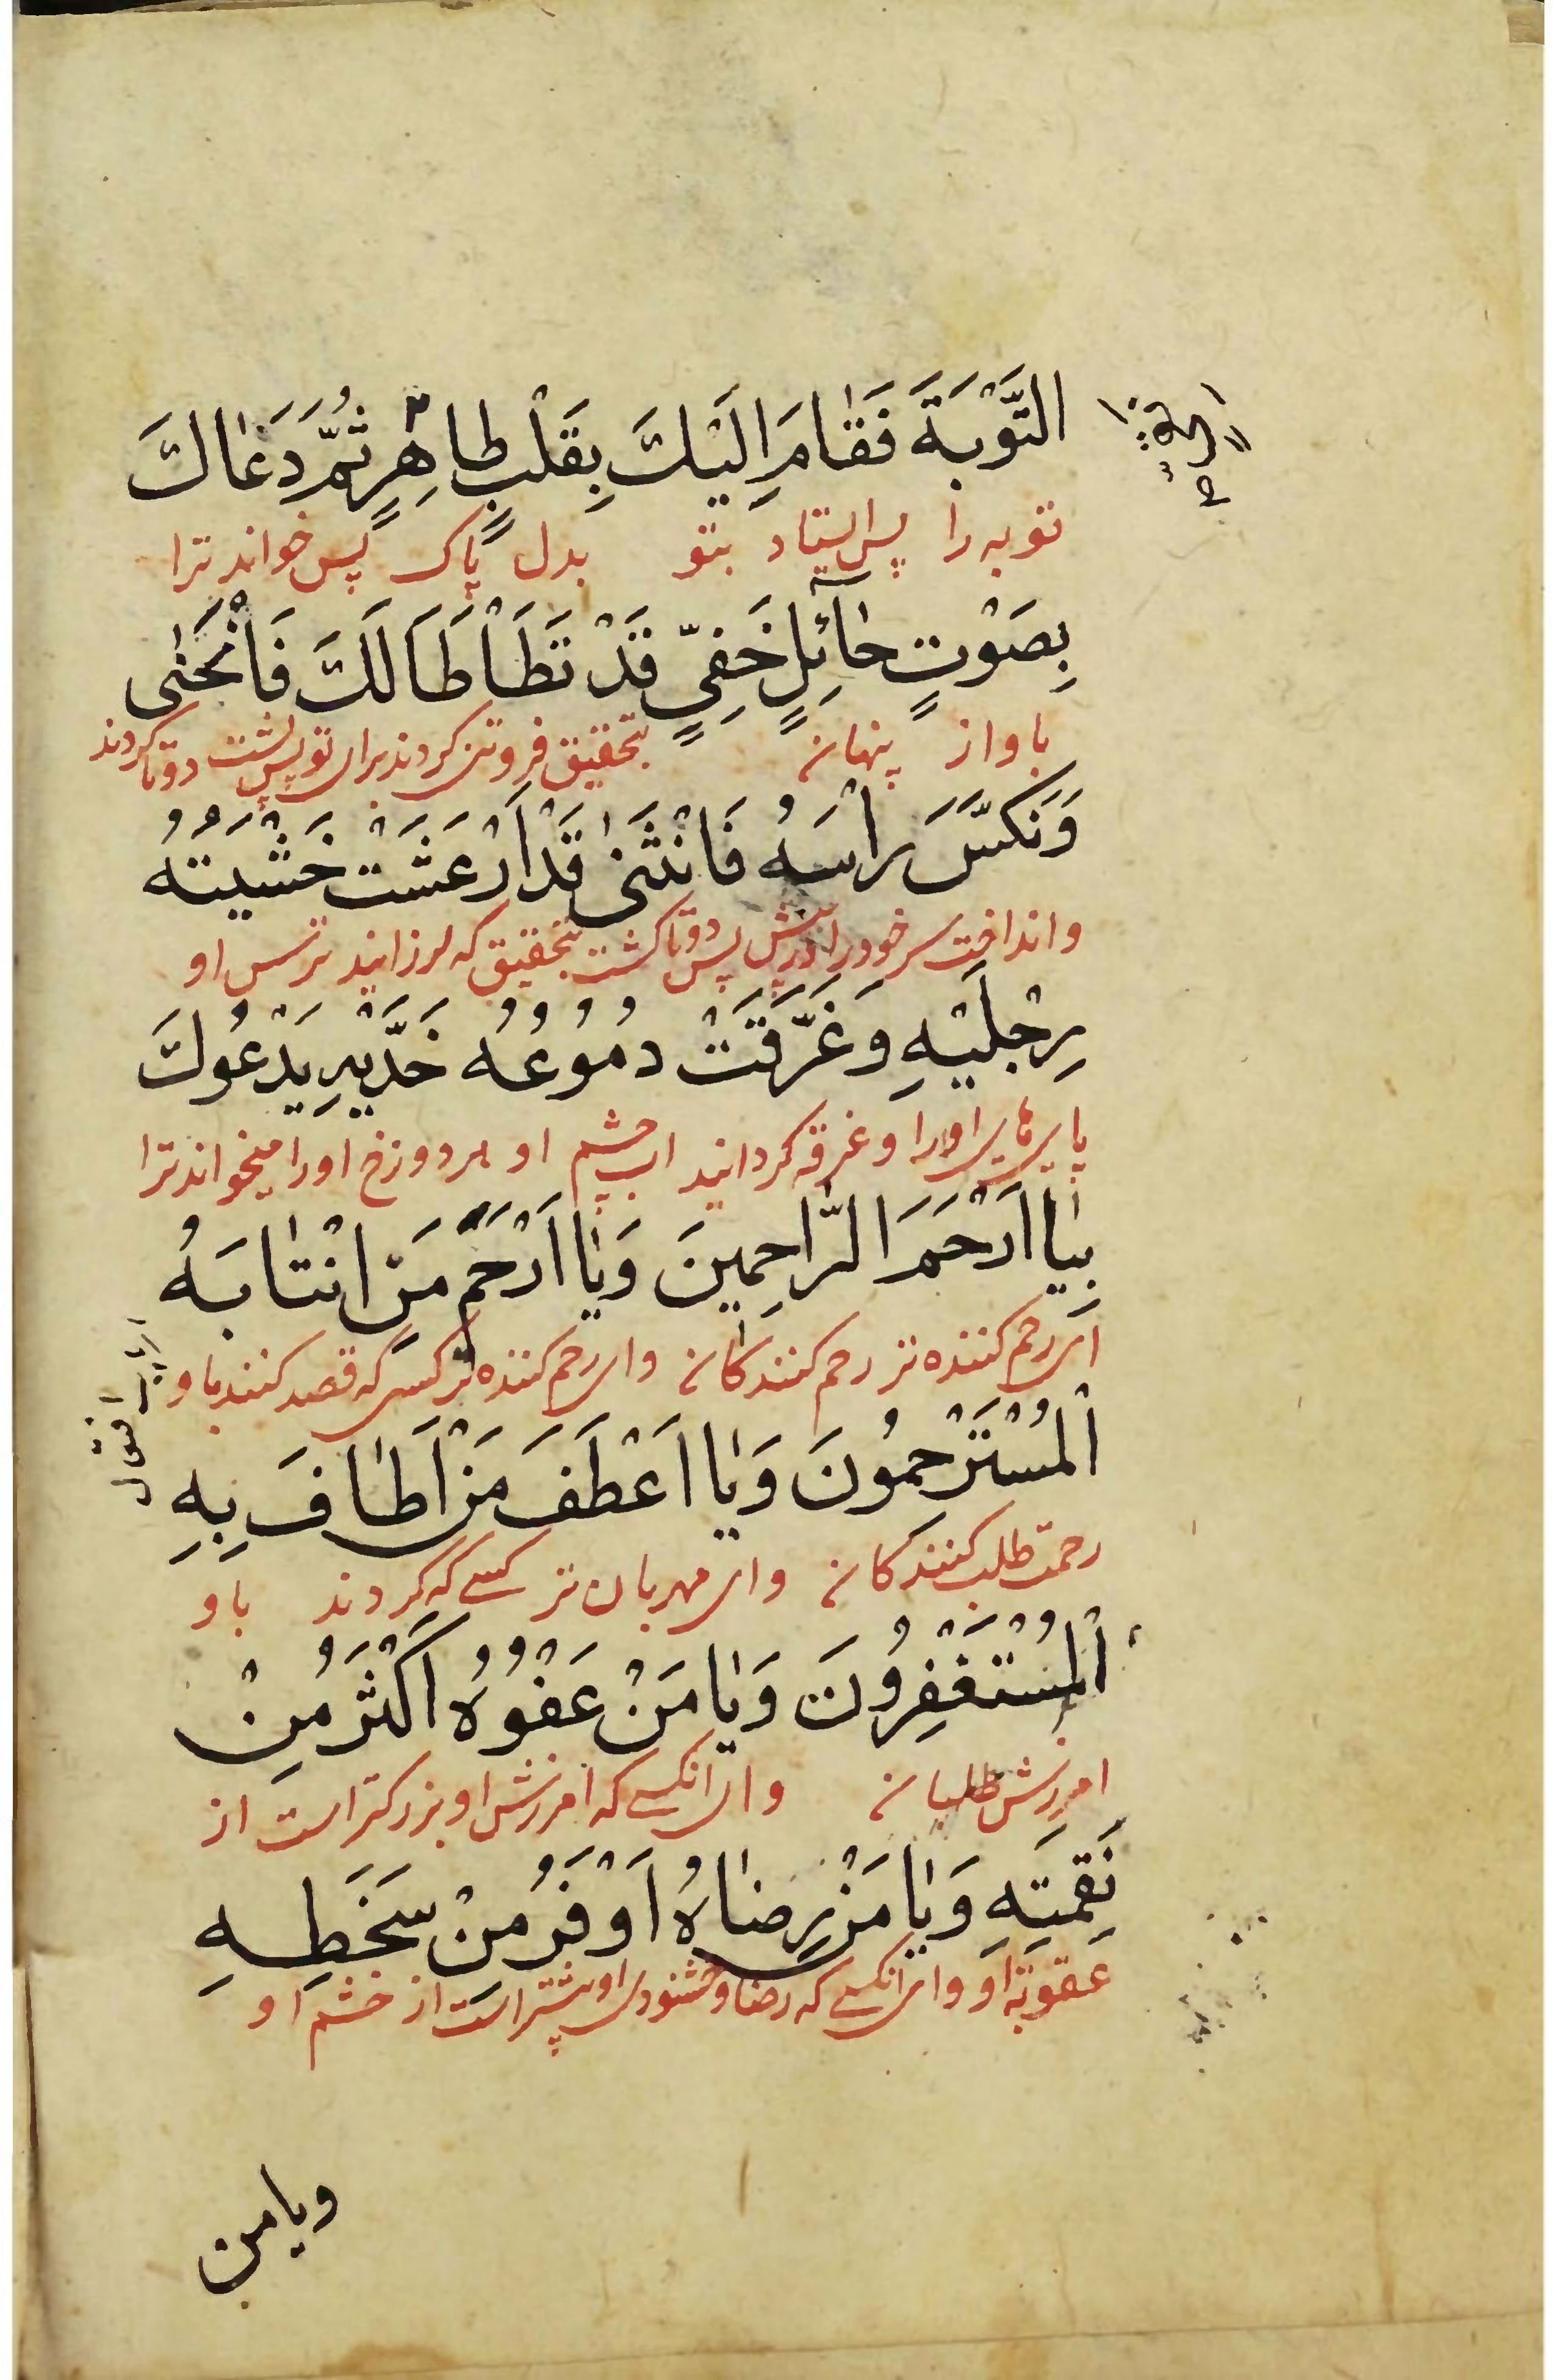 التَّوْبَةَ فَقَامَ اِلَيْكَ بِقَلْبٍ طاهِرٍ ثُمَّ دَعَاكَ
توبه را پس ایستاد بتو بدل پاک پس خواند ترا
بِصَوْتٍ حآئِلٍ خَفِيٍّ قَدْ تَطَاْطَا لَكَ فَانْحَنٰى
باواز پنهان بتحقیق فروتنی کردند برای تو پس پشت دوتا کردند
وَنَكَّسَ رَاْسَهُ فَانْثَنٰى قَدْ اَرْعَشَتْ خَشْيَتُهُ
و انداخت سر خود را در پیش پس دوتا کشت بتحقیق که لرزانید ترس او
رِجْلَيْهِ وَغَرَّقَتْ دُمُوعُهُ خَدَّيْهِ يَدْعُوكَ
پای های اورا و غرقه کردانید اب چشم او هر دو رخ اورا میخواند ترا
بِيٰا اَرْحَمَ الرّٰاحِمينَ وَيٰا اَرْحَمَ مَنْ انْتٰابَهُ
ای رحم کننده تر رحم کنندکان وای رحم کننده تر کسی که قصد کنند باو
الْمُسْتَرْحِمُونَ وَيٰا اَعْطَفَ مَنْ اَطٰافَ بِهِ
رحمت طلب کنندکان وای مهربان تر کسے که کردند باو
الْمُسْتَغْفِرُونَ وَيٰا مَنْ عَفْوُهُ اَكْثَرُ مِنْ
امرزش طلبان وای انکسے که امرزش او بزرکتر است از
نَقِمَتِهِ وَيٰا مَنْ رِضٰاهُ اَوْفَرُ مِنْ سَخَطِهِ
عقوبته او وای انکسے که رضا و خشنودی او بیشتر است از خشم او
ویا من